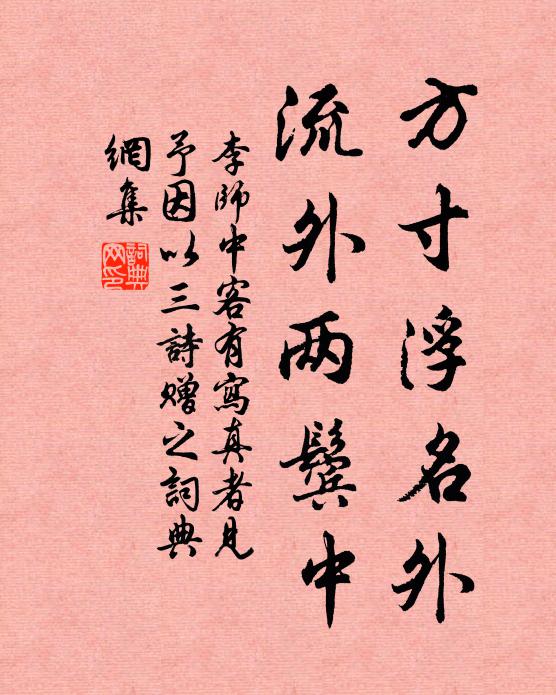 方寸浮名外
流外两鬓中
李師中客有寫真者見
予因以三詩贈之詞典
網集
詞典
网印